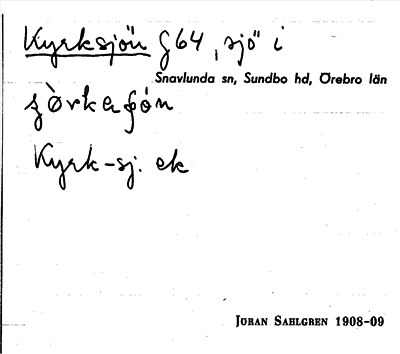 Kyrksjön § 64, sjö i
Snavlunda sn, Sundbo hd, Örebro län
Kyrk-sj. ek
JÖRAN SAHLGREN 1908-09